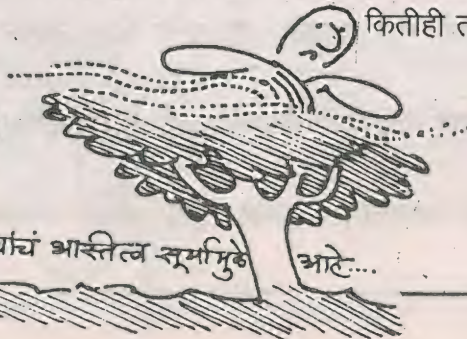 कितीही त
यांचं आस्तित्व सूर्यामुळे आहे...